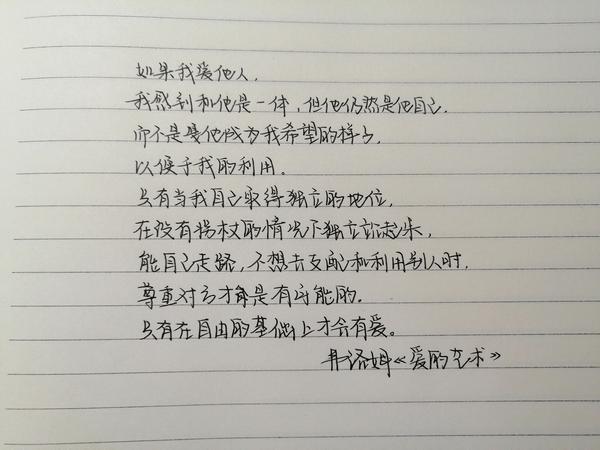 如果我爱他人,
我感到和他是一体,但他仍然是他自己,
而不是要他成为我希望的样子,
以便于我的利用。
只有当我自己取得独立的地位,
在没有拐杖的情况下独立站起来,
能自己走路,不想去支配和利用别人时,
尊重对方才能是有可能的.
只有在自由的基础上才会有爱。
弗洛姆《爱的艺术》